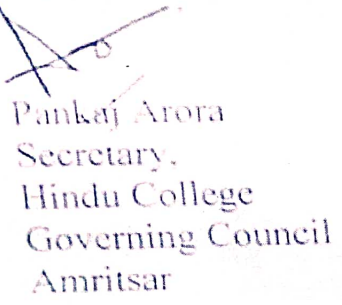 Pankaj Arora
Secretary,
Hindu College
Governing Council
Amritsar